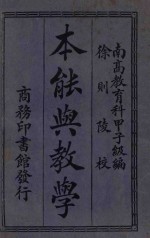 南高教育科甲子級編
徐則陵校
本能與教學
商務印書館發行